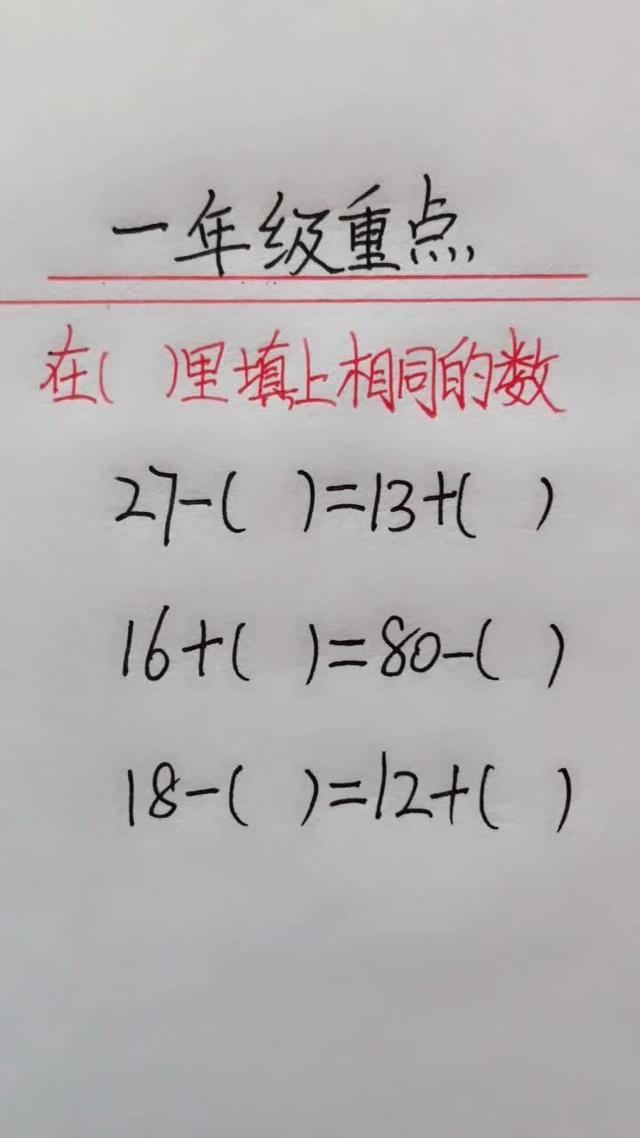 一年级重点
在( )里填上相同的数
27-( )=13+( )
16+( )=80-( )
18-( )=12+( )